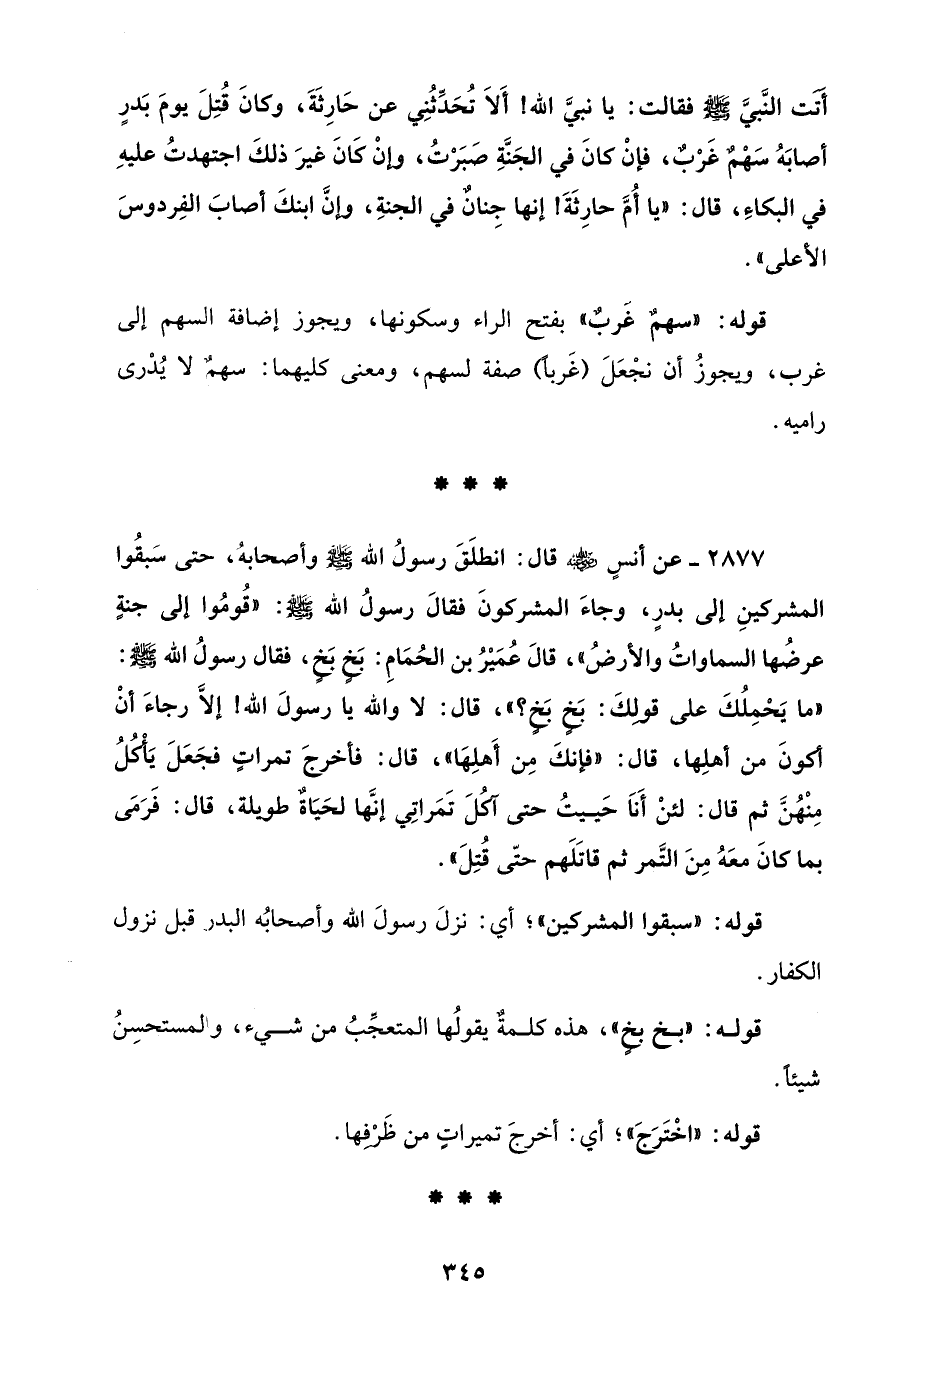 أَتَت النَّبيَّ ﷺ فقالت: يا نبيَّ الله! أَلاَ تُحَدِّثُنِي عن حَارِثَةَ، وكانَ قُتِلَ يومَ بَدرٍ
أصابَهُ سَهْمٌ غَرْبٌ، فإنْ كانَ في الجَنَّةِ صَبَرْتُ، وإنْ كَانَ غيرَ ذلكَ اجتهدتُ عليهِ
في البكاءِ، قال: «يا أُمَّ حارِثَةَ! إنها جِنانٌ في الجنةِ، وإنَّ ابنكَ أصابَ الفِردوسَ
الأعلى».
قوله: «سهمٌ غَربٌ» بفتح الراء وسكونها، ويجوز إضافة السهم إلى
غرب، ويجوزُ أن نجْعَلَ (غَرباً) صفة لسهم، ومعنى كليهما: سهمٌ لا يُدْرى
راميه.
* * *
٢٨٧٧ - عن أنسٍ رضي الله عنه قال: انطلَقَ رسولُ الله ﷺ وأصحابهُ، حتى سَبقُوا
المشركينِ إلى بدرٍ، وجاءَ المشركونَ فقالَ رسولُ الله ﷺ: «قُومُوا إلى جنةٍ
عرضُها السماواتُ والأرضُ»، قالَ عُمَيْرُ بن الحُمَامِ: بَخٍ بَخٍ، فقال رسولُ الله ﷺ:
«ما يَحْمِلُكَ على قولِكَ: بَخٍ بَخٍ؟»، قال: لا والله يا رسولَ الله! إلاَّ رجاءَ أنْ
أكونَ من أهلِها، قال: «فإنكَ مِن أَهلِهَا»، قال: فأخرجَ تمراتٍ فجَعَلَ يَأْكُلُ
مِنْهُنَّ ثم قال: لئنْ أَنَا حَيـيتُ حتى آكُلَ تَمَراتِي إنَّها لحَيَاةٌ طويلة، قال: فَرَمَى
بما كانَ معَهُ مِنَ التَّمر ثم قاتَلَهم حتّى قُتِلَ».
قوله: «سبقوا المشركين»؛ أي: نزلَ رسولَ الله وأصحابُه البدر قبل نزول
الكفار.
قولـه: «بـخ بخٍ»، هذه كلـمةٌ يقولُها المتعجِّبُ من شـيء، والمستحسِنُ
شيئاً.
قوله: «اخْتَرَجَ»؛ أي: أخرجَ تميراتٍ من ظَرْفِها.
* * *
٣٤٥